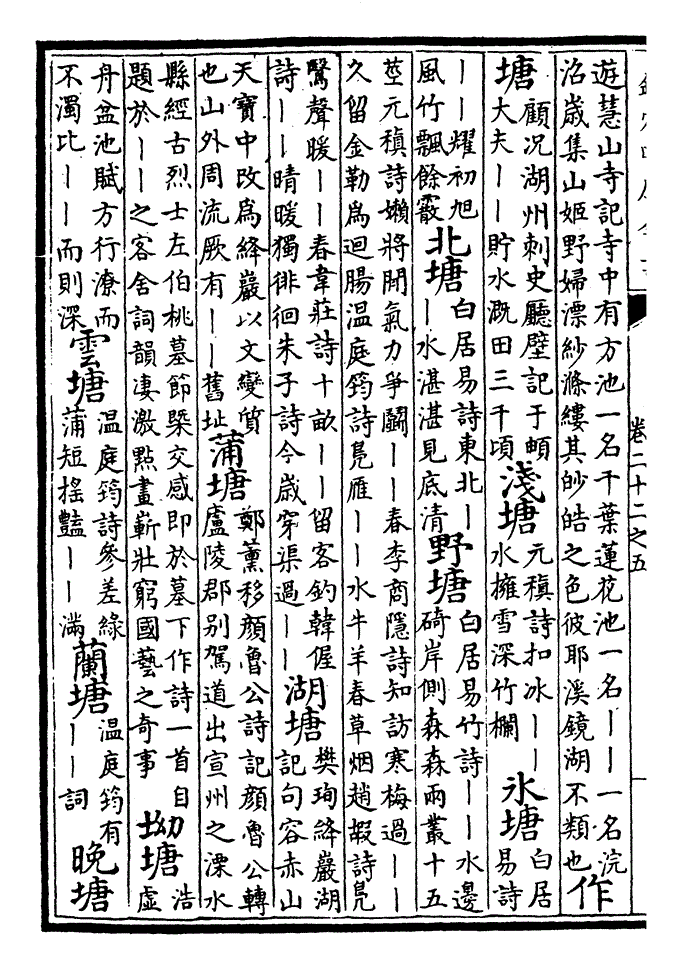 卷二十二之五
遊慧山寺記寺中有方池一名千葉蓮花池一名丨丨一名浣
沼歲集山姬野婦漂紗滌縷其皎皓之色彼耶溪鏡湖不類也
作
塘
顧况湖州刺史廳壁記于頔
大夫丨丨貯水溉田三千頃
淺塘
元稹詩扣冰丨丨
水擁雪深竹欄
氷塘
白居
易詩
丨丨耀初旭
風竹飄餘霰
北塘
白居易詩東北丨
丨水湛湛見底清
野塘
白居易竹詩丨丨水邊
碕岸側森森兩叢十五
莖元稹詩嬾將閒氣力爭鬬丨丨春李商隱詩知訪寒梅過丨丨
久留金勒為迴腸温庭筠詩鳧雁丨丨水牛羊春草烟趙嘏詩鳧
驚聲暖丨丨春韋莊詩十畝丨丨留客釣韓偓
詩丨丨晴暖獨徘徊朱子詩今歲穿渠過丨丨
湖塘
樊珣絳巖湖
記句容赤山
天寶中改為絳巖以文變質
也山外周流厥有丨丨舊址
蒲塘
鄭薰移顔魯公詩記顔魯公轉
盧陵郡别駕道出宣州之溧水
縣經古烈士左伯桃墓節槩交感即於墓下作詩一首自
題於丨丨之客舍詞韻凄激點畫嶄壯窮國藝之奇事
坳塘
浩
虚
舟盆池賦方行潦而
不濁比丨丨而則深
雲塘
温庭筠詩參差綠
蒲短搖豔丨丨滿
蘭塘
温庭筠有
丨丨詞
晚塘